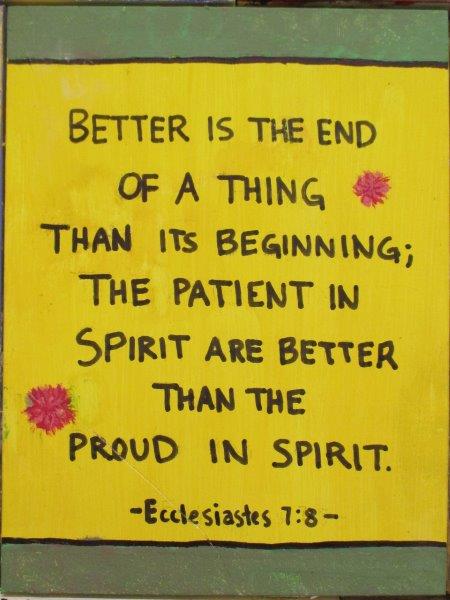 BETTER IS THE END
OF A THING
THAN ITS BEGINNING;
THE PATIENT IN
SPIRIT ARE BETTER
THAN THE
PROUD IN SPIRIT.
-Ecclesiastes 7:8-